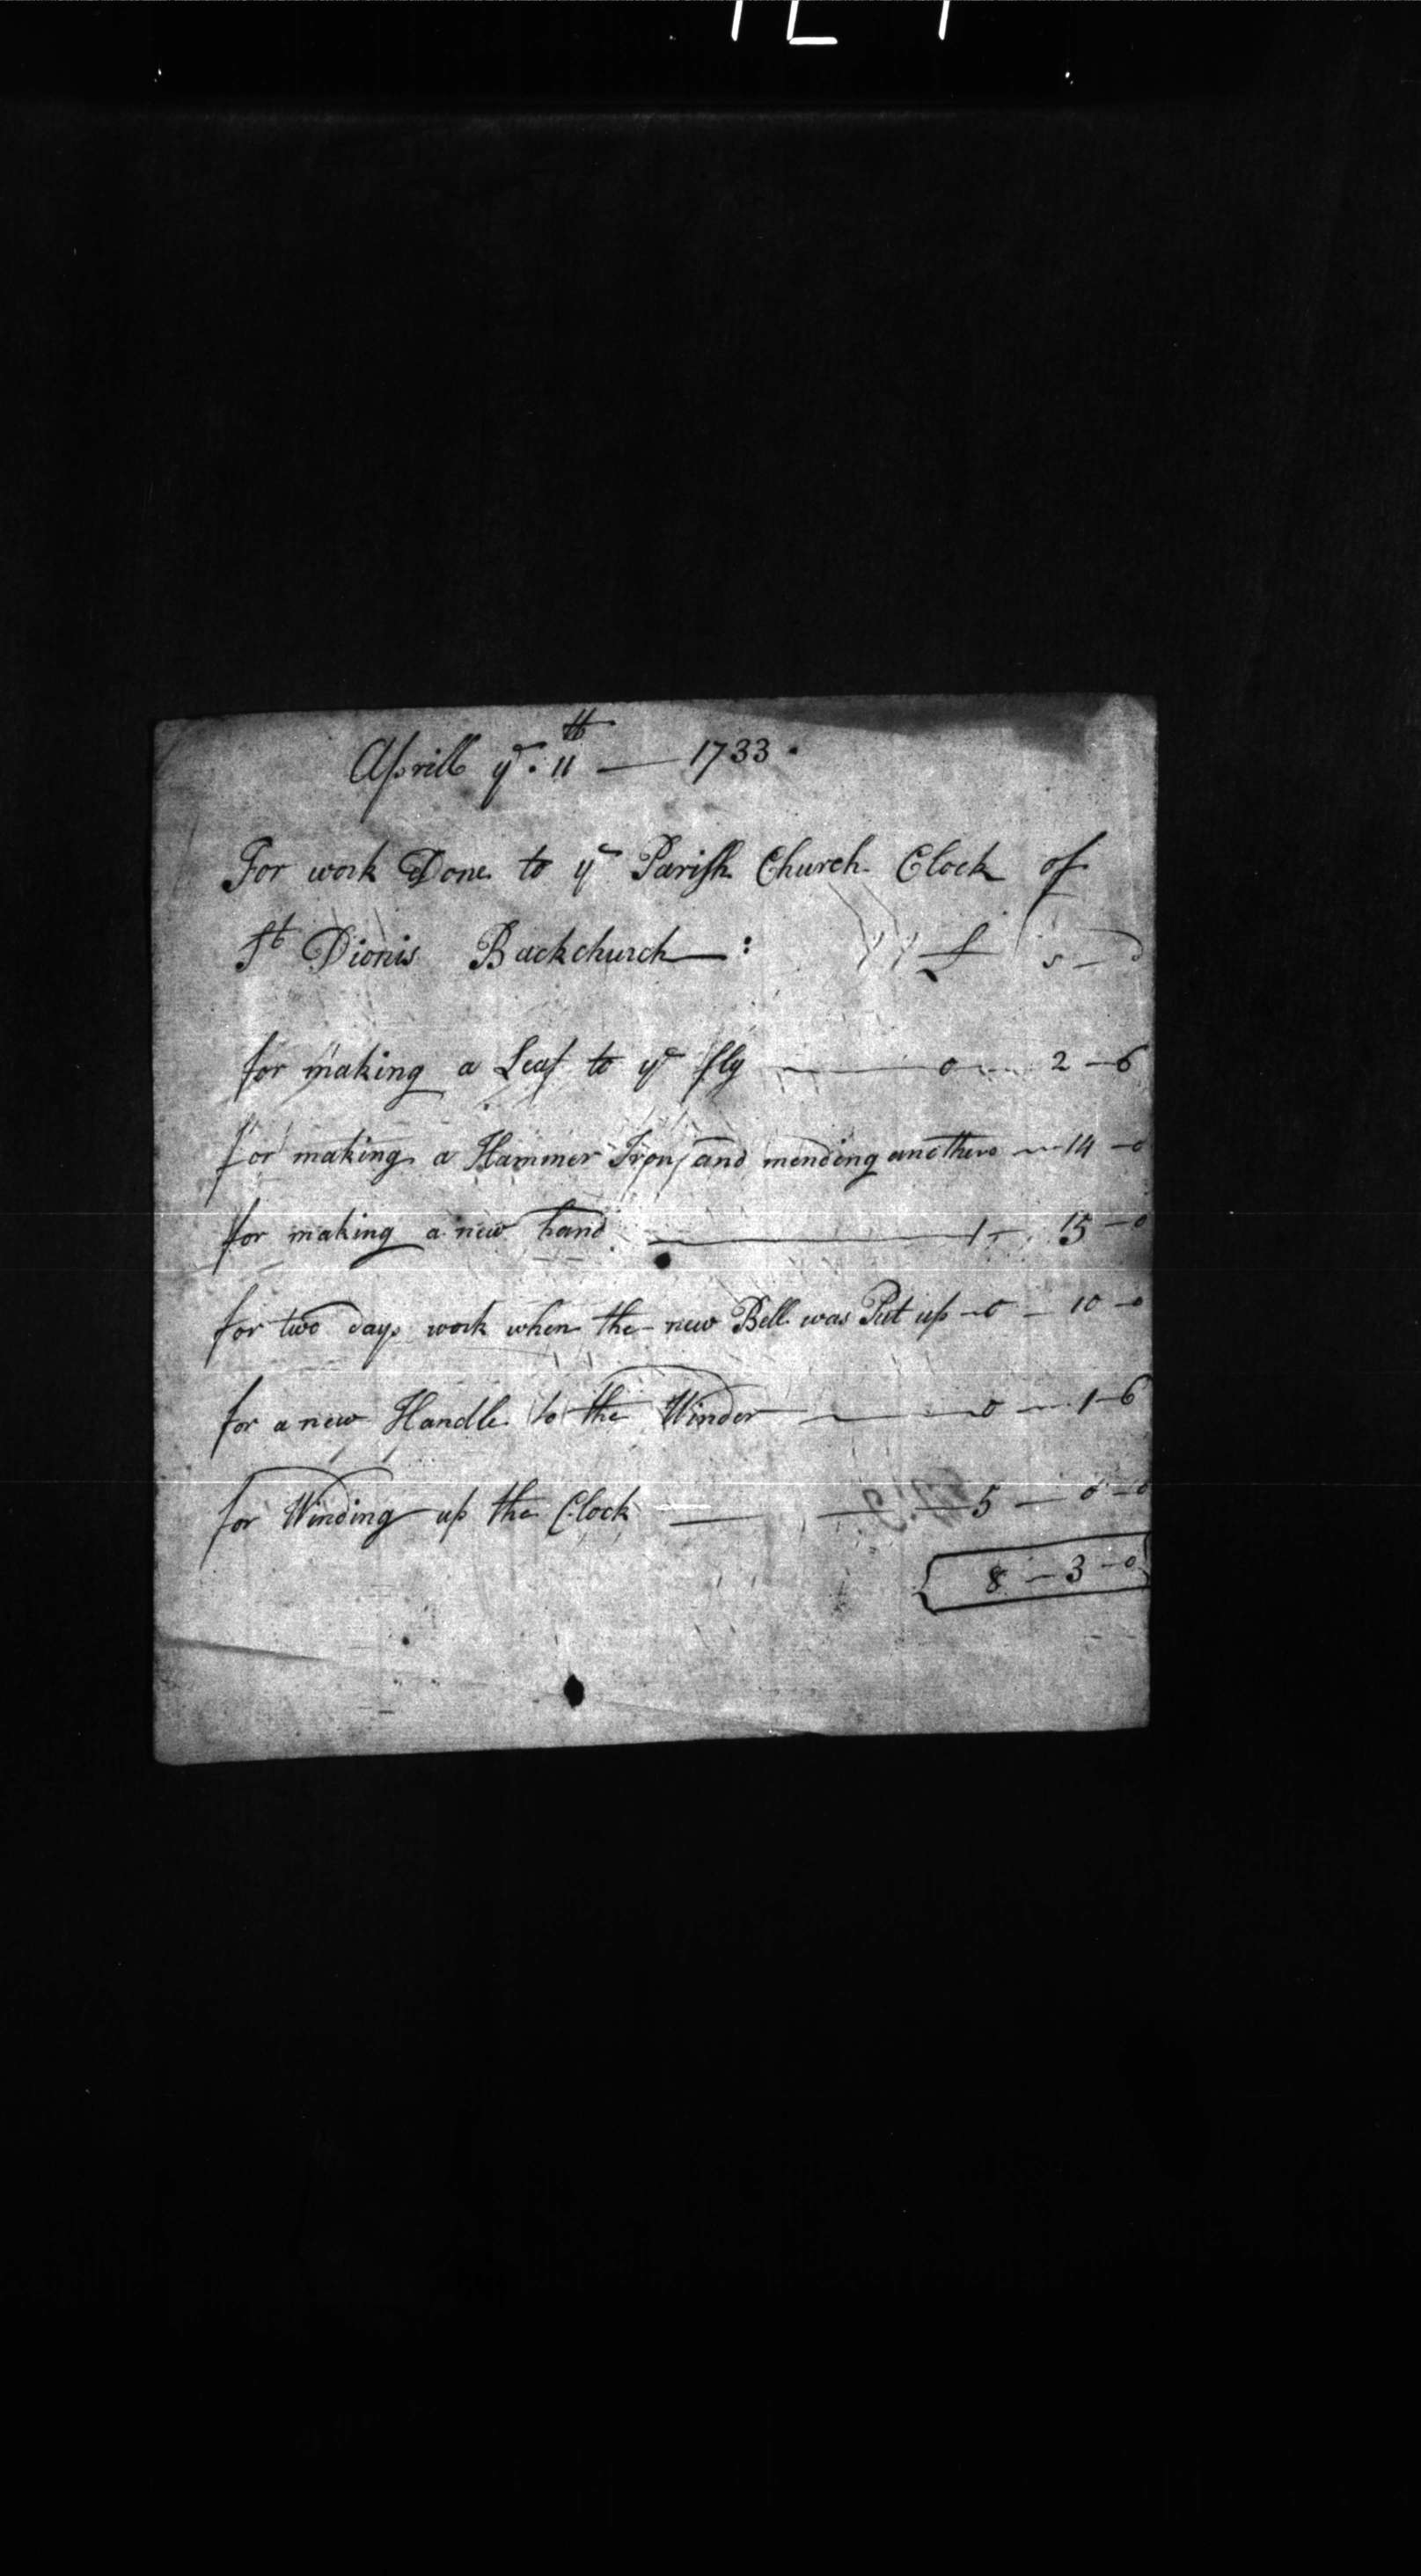 Aprill ye. 11th — 1733.
For work Done to ye Parish Church Clock of
St Dionis Backchurch — : £ s — d
for making a Leaf to ye fly — 0 — 2 — 6
for making a Hammer Iron, and mending another — 14 — 0
for making a new hand — 1 — 15 — 0
for two days work when the new Bell was Put up — 0 — 10 — 0
for a new Handle to the Winder — 0 — 1 — 6
for Winding up the Clock — 5 — 0 — 0
8 — 3 — 0